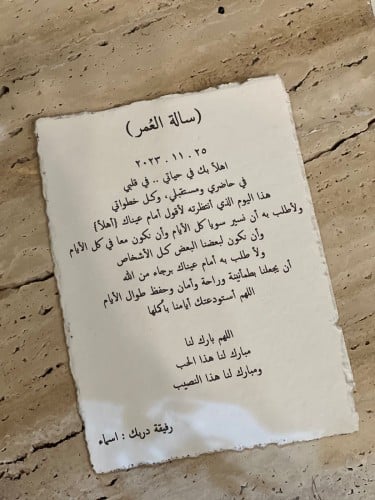 (سالة العُمر)
٢٠٢٣ . ١١ . ٢٥
اهلاً بك في حياتي .. في قلبي
في حاضري ومستقبلي، وكل خطواتي
هذا اليوم الذي أنتظرته لأقول أمام عيناك (أهلاً)
ولأطلب به أن نسير سويا كل الأيام وأن نكون معا في كل الأيام
وأن نكون لبعضنا البعض كل الأشخاص
ولأ طلب به أمام عيناك برجاء من الله
أن يجعلنا بطمأنينة وراحة وأمان وحفظ طوال الأيام
اللهم أستودعتك أيامنا بأكملها
اللهم بارك لنا
مبارك لنا هذا الحب
ومبارك لنا هذا النصيب
رفيقة دربك : اسماء